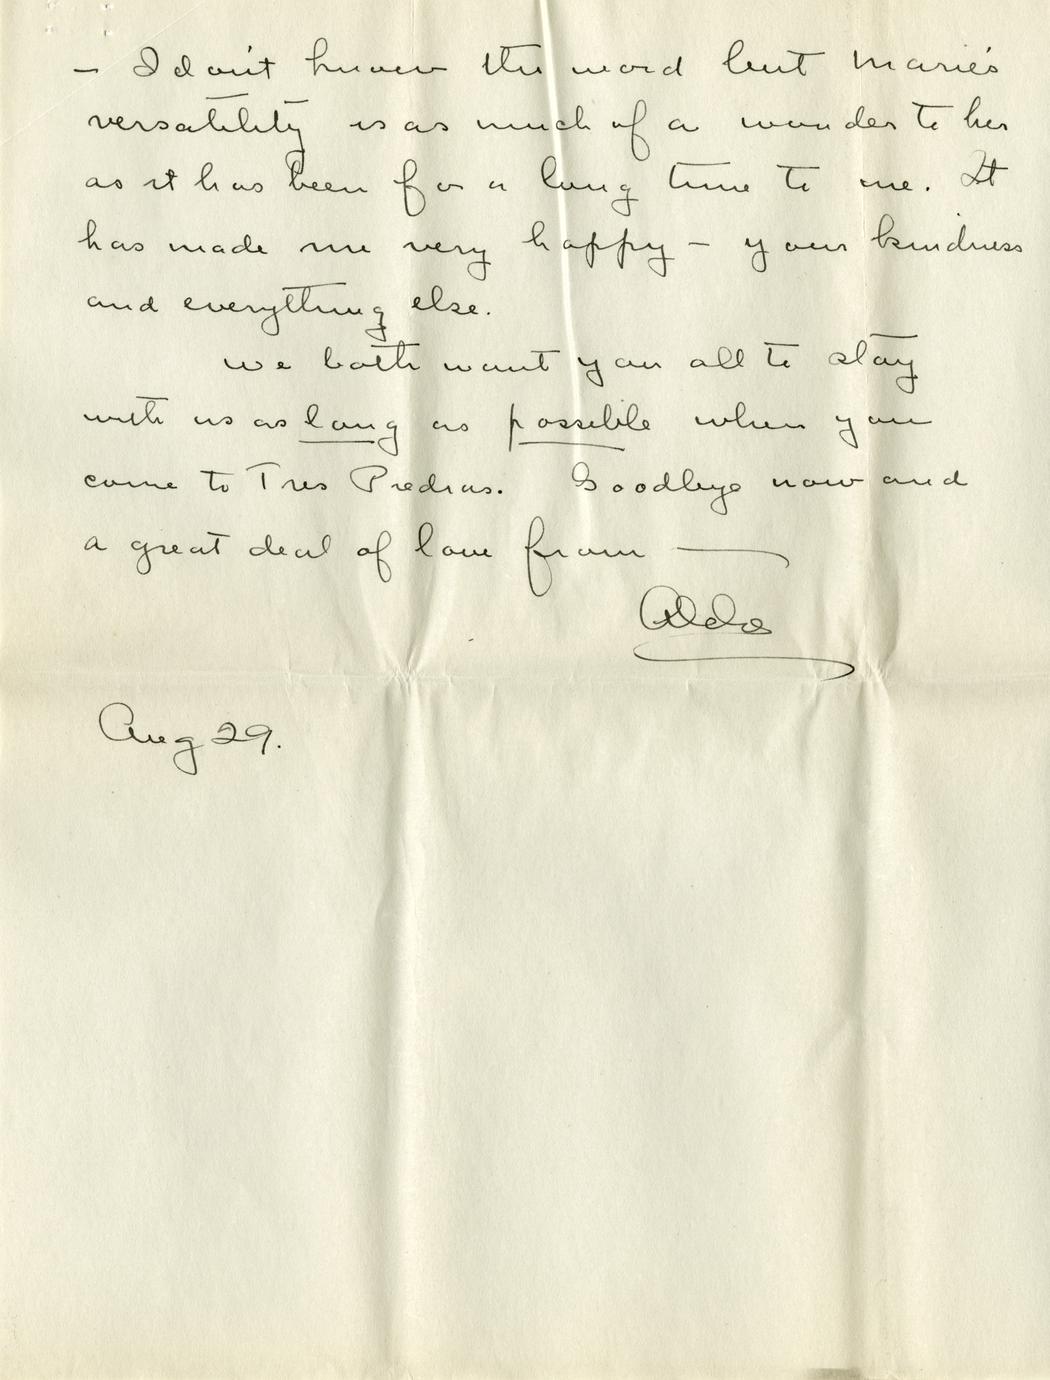 – I don't know the word but Marie's
versatility is as much of a wonder to her
as it has been for a long time to me. It
has made me very happy – your kindness
and everything else.
We both want you all to stay
with us as long as possible when you
come to Tres Piedras. Goodbye now and
a great deal of love from —
Aldo
Aug 29.